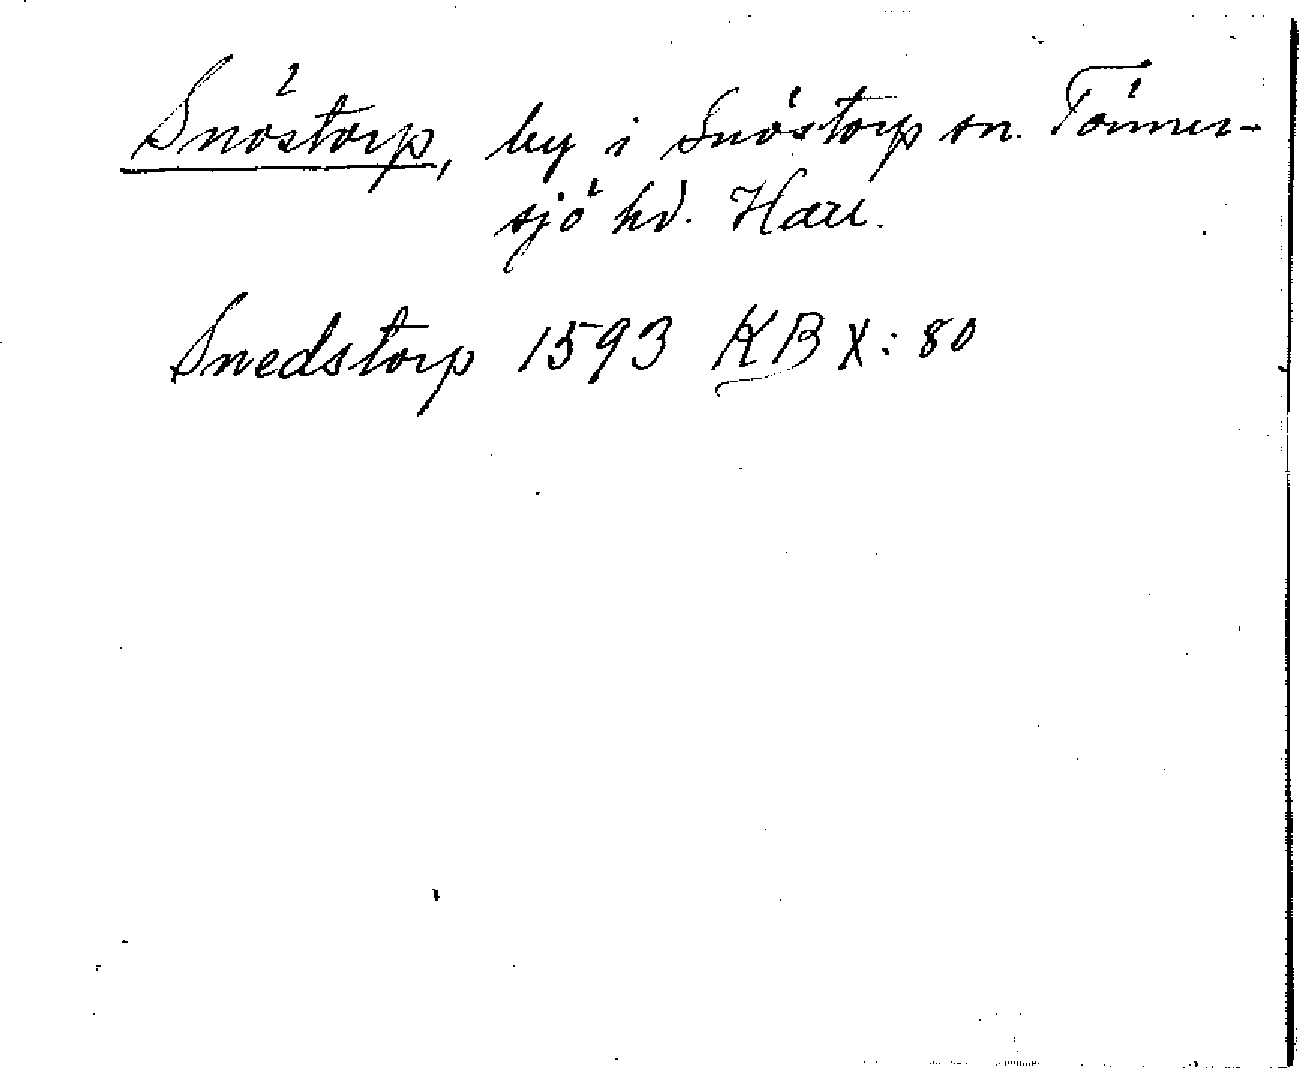 Snöstorp, by i Snöstorp sn. Tönner-
sjö hd. Hall.
Snedstorp 1593 KB X: 80